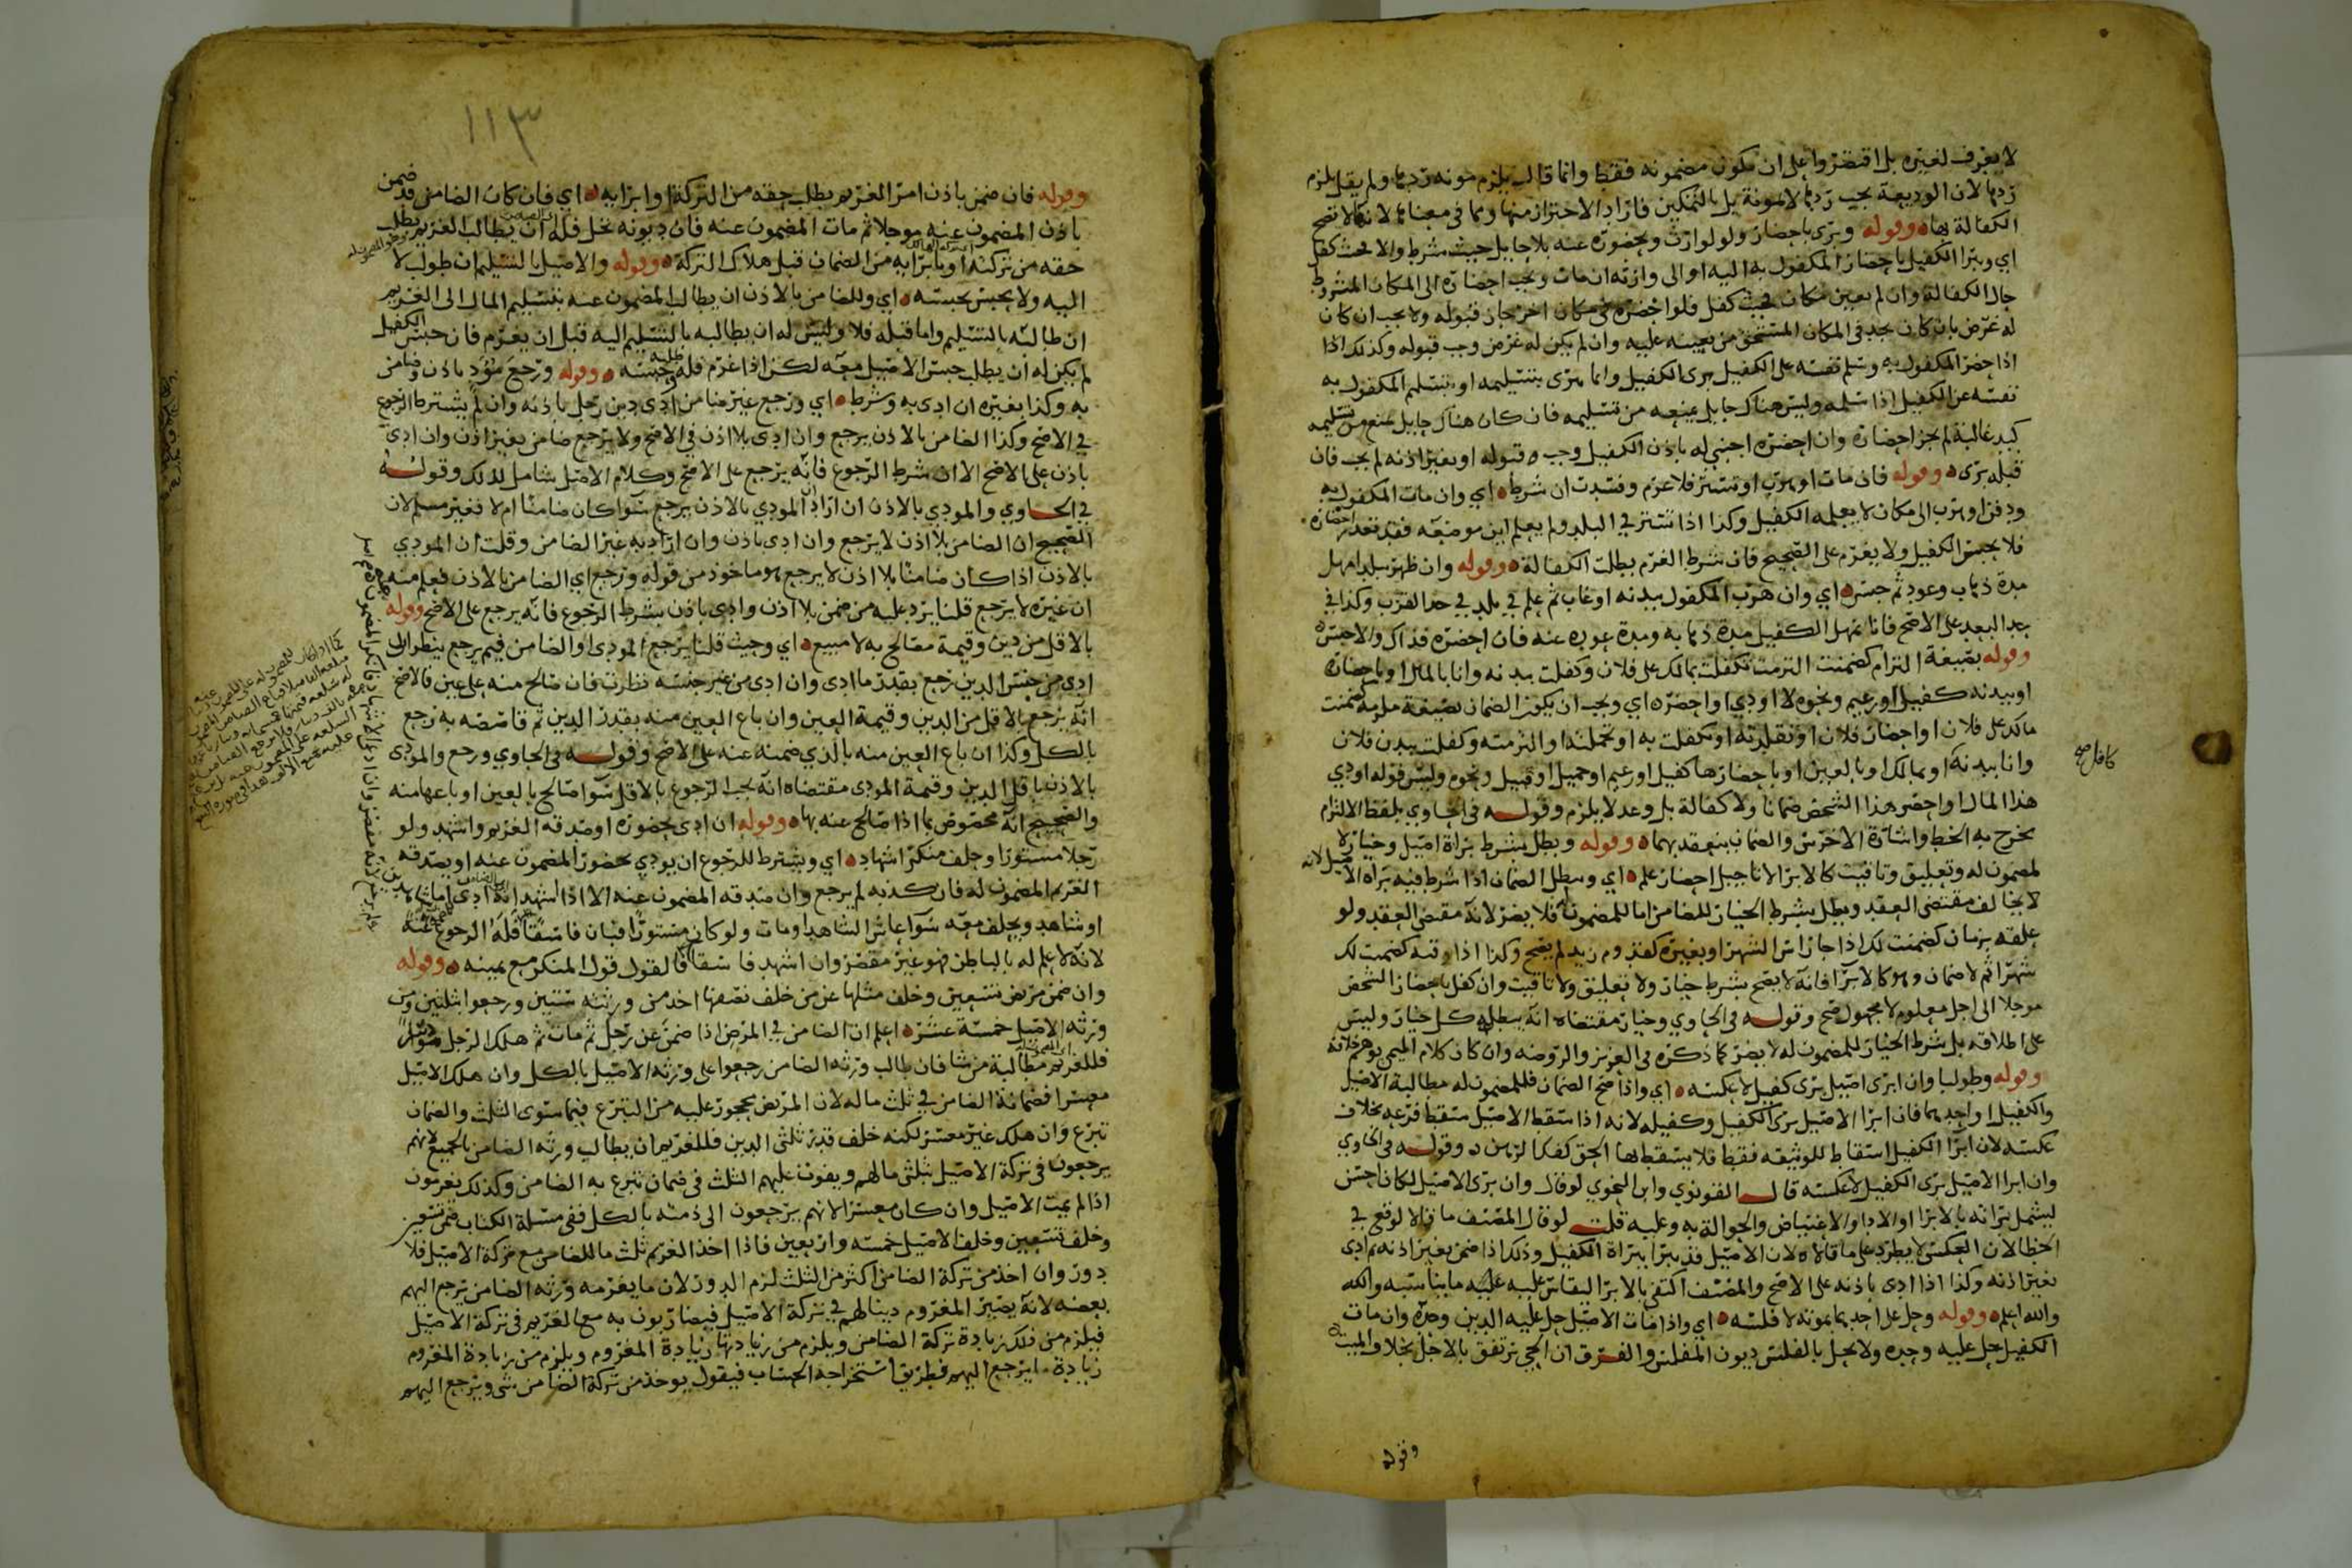 لا يغرف لغيره بل اقتصروا على ان تكون مضمونه فقط وانما قال يلزم مونه ردها ولم يقل يلزم
ردها لان الوديعة يجب ردها لا مونة بل بالتمكين فاراد الاحتراز منها ومما في معناها لانها لا تصح
الكفالة بها وقوله وبرى باحضار ولو لوارث وبحضوره عنه بلا حايل حيث شرط والا فحيث كفل
اي ويبرا الكفيل باحضار المكفول به اليه او الى وارثه ان مات ويجب احضاره الى المكان المشروط
حال الكفالة وان لم يعين مكان فحيث كفل فلو احضره في مكان اخر جاز قبوله ولا يجب ان كان
له غرض بان كان يجد في المكان المستحق من يعينه عليه وان لم يكن له غرض وجب قبوله وكذلك اذا
اذا حضر المكفول به وسلم نفسه على الكفيل برى الكفيل وانما يبرى بتسليمه او بتسليم المكفول به
نفسه عن الكفيل اذا سلمه وليس هناك حايل يمنعه من تسليمه فان كان هناك حايل يمنع من تسليمه
كيد غالبة لم يجز احضاره وان احضره اجنبي له باذن الكفيل وجب قبوله او بغير اذنه لم يجب فان
قبله برى وقوله فان مات او هرب او تستر فلا غرم وفسدت ان شرط اي وان مات المكفول به
ودفن او هرب الى مكان لا يعلمه الكفيل وكذا اذا تستر في البلد ولم يعلم اين موضعه فقد تعذر احضاره
فلا يحبس الكفيل ولا يغرم على الصحيح فان شرط الغرم بطلت الكفالة وقوله وان ظهر ببلد امهل
مدة ذهاب وعود ثم حبس اي وان هرب المكفول ببدنه او غاب ثم علم في بلد في حد القرب وكذا في
حد البعد على الاصح فانا نمهل الكفيل مدة ذهابه ومدة عوده عنه فان احضره فذاك والا حبس
وقوله بصيغة التزام كضمنت التزمت تكفلت بمالك على فلان وكفلت ببدنه وانا بالمال او باحضاره
او ببدنه كفيل او زعيم ونحوه لا اودي او احضره اي ويجب ان يكون الضمان بصيغة ملزمة كضمنت
مالك على فلان او احضار فلان او تقلدته او تكفلت به او تحملته او التزمته وكفلت ببدن فلان
وانا ببدنه او بمالك او بالعين او باحضارها كفيل او زعيم او حميل او قبيل ونحوه وليس قوله اودي
كافل صح
هذا المال او احضر هذا الشخص ضمانا ولا كفالة بل وعد لا يلزم وقوله في الحاوي بلفظ الالتزام
يخرج به الخط واشارة الاخرس والضمان ينعقد بهما وقوله وبطل بشرط براة اصيل وخيار لا
لمضمون له وتعليق وتاقيت كالابرا لا تاجيل احضار علم اي ويبطل الضمان اذا شرط فيه براه الاصيل لانه
لا يخالف مقتضى العقد ويبطل بشرط الخيار للضامن اما للمضمون له فلا يضر لانه مقتضى العقد ولو
علقه بزمان كضمنت لك اذا جا راس الشهر او بغيره كقدوم زيد لم يصح وكذا اذا وقته كضمنت لك
شهرا ثم لا ضمان وهو كالابرا فانه لا يصح بشرط خيار ولا تعليق ولا تاقيت وان كفل باحضار الشخص
موجلا الى اجل معلوم لا مجهول صح وقوله في الحاوي وخيار مقتضاه انه يبطله كل خيار وليس
على اطلاقه بل شرط الخيار للمضمون له لا يضر كما ذكره في العزيز والروضه وان كان كلام المتن يوهم خلافه
وقوله وطولبا وان ابرى اصيل برى كفيل لا عكسه اي واذا صح الضمان فللمضمون له مطالبة الاصيل
والكفيل او احدهما فان ابرا الاصيل برى الكفيل وكفيله لانه اذا سقط الاصيل سقط فرعه بخلاف
عكسه لان ابرا الكفيل اسقاط للوثيقه فقط فلا يسقط لها الحق كفك الرهن وقوله في الحاوي
وان ابرا الاصيل برى الكفيل لا عكسه قال القونوي وابن النحوي لو قال وان برى الاصيل لكان احسن
ليشمل براته بالابرا او الادا والاعتياض والحوالة به وعليه قلت لو قال المصنف ما قالا لوقع في
الخطا لان العكس لا يطرد على ما قالاه لان الاصيل قد يبرا ببراة الكفيل وذلك اذا ضمن بغير اذنه ثم ادى
بغير اذنه وكذا اذا ادى باذنه على الاصح والمصنف اكتفى بالابرا ليقاس عليه عليه ما يناسبه والله
والله اعلم وقوله وحل على احدهما بموته لا فلسه اي واذا مات الاصيل حل عليه الدين وحده وان مات
الكفيل حل عليه وحده ولا يحل بالفلس ديون المفلس والفرق ان الحي يرتفق بالاجل بخلاف الميت
وقوله
١١٣
وقوله فان ضمن باذن امر الغريم بطلب حقه من التركة او ابرايه اي فان كان الضامن قد ضمن
باذن المضمون عنه موجلا ثم مات المضمون عنه فان ديونه تحل فله ان يطالب الغريم بطلب
حقه من تركته او بابرايه من الضمان قبل هلاك التركة وقوله والاصيل بالتسليم ان طولب لا
اليه ولا يحبس بحبسه اي وللضامن بالاذن ان يطالب المضمون عنه بتسليم المال الى الغريم
ان طالبه بالتسليم واما قبله فلا وليس له ان يطالبه بالتسليم اليه قبل ان يغرم فان حبس الكفيل
لم يكن له ان يطلب حبس الاصيل معه لكن اذا غرم فله طلبه وحبسه وقوله ورجع مؤد باذن وضامن
به وكذا بغيره ان ادى به وشرط اي ورجع غير ضامن ادى دين رجل باذنه وان لم يشترط الرجوع
في الاصح وكذا الضامن بالاذن يرجع وان ادى بلا اذن في الاصح ولا يرجع ضامن بغير اذن وان ادى
باذن على الاصح الا ان شرط الرجوع فانه يرجع على الاصح وكلام الاصل شامل لذلك وقوله
في الحاوي والمودي بالاذن ان اراد ان المودي بالاذن يرجع سوا كان ضامنا ام لا فغير مسلم لان
الصحيح ان الضامن بلا اذن لا يرجع وان ادى باذن وان اراد به غير الضامن وقلت ان المودي
بالاذن اذا كان ضامنا بلا اذن لا يرجع هو ماخوذ من قوله ورجع اي الضامن بالاذن فعلم منه
ان غيره لا يرجع قلنا يرد عليه من ضمن بلا اذن وادى باذن بشرط الرجوع فانه يرجع على الاصح وقوله
بالاقل من دين وقيمة مصالح به لا مبيع اي وحيث قلنا يرجع المودي او الضامن فيم يرجع ينظر ان
ادى من جنس الدين رجع بقدر ما ادى وان ادى من غير جنسه نظرت فان صالح منه على عين فالاصح
انه يرجع بالاقل من الدين وقيمة العين وان باع العين منه بقدر الدين ثم قاصصه به رجع
بالكل وكذا ان باع العين منه بالذي ضمنه عنه على الاصح وقوله في الحاوي ورجع والمودى
بالاذن باقل الدين وقيمة المودى مقتضاه انه يجب الرجوع بالاقل سوا صالح بالعين او باعها منه
والصحيح انه مخصوص بما اذا صالح عنه بها وقوله ان ادى بحضوره او صدقه الغريم او اشهد ولو
رجلا مستورا وحلف منكر اشهاد اي ويشترط للرجوع ان يودي بحضور المضمون عنه او يصدقه
الغريم المضمون له فان كذبه لم يرجع وان صدقه المضمون عنه الا اذا اشهد انه ادى
او شاهد ويحلف معه سوا عاش الشاهد او مات ولو كان مستورا فبان فاسقا فله الرجوع
لانه لا علم له بالباطن فهو غير مقصر وان اشهد فاسقا فالقول قول المنكر مع يمينه وقوله
وان ضمن مريض تسعين وخلف مثلها عن من خلف نصفها اخذ من ورثته ستين ورجعوا بثلثين ومن
ورثه الاصيل خمسة عشر اعلم ان الضامن في المرض اذا ضمن عن رجل ثم مات ثم هلك الرجل موسرا
فللغريم مطالبة من شا فان طالب ورثه الضامن رجعوا على ورثه الاصيل بالكل وان هلك الاصيل
معسرا فضمانه الضامن في ثلث ماله لان المريض محجور عليه من التبرع فيما سوى الثلث والضمان
تبرع وان هلك غير معسر لكنه خلف قدر ثلثي الدين فللغريم ان يطالب ورثه الضامن بالجميع لانهم
يرجعون في تركة الاصيل بثلثي مالهم ويفوت عليهم الثلث في ضمان تبرع به الضامن وكذلك يغرمون
اذا لم يمت الاصيل وان كان معسرا لانهم يرجعون الى ذمته بالكل ففي مسئلة الكتاب ضمن تسعين
وخلف تسعين وخلف الاصيل خمسه واربعين فاذا اخذ الغريم ثلث ما للضامن مع تركة الاصيل فلا
دور وان اخذ من تركة الضامن اكثر من الثلث لزم الدور لان ما يغرمه ورثه الضامن يرجع اليهم
بعضه لانه يصير المغروم دينا لهم في تركة الاصيل فيضاربون به مع الغريم في تركة الاصيل
فيلزم من ذلك زيادة تركة الضامن ويلزم من زيادتها زيادة المغروم ويلزم من زيادة المغروم
زيادة ما يرجع اليهم فطريق استخراجه الحساب فيقول يوخذ من تركة الضامن شي ويرجع اليهم